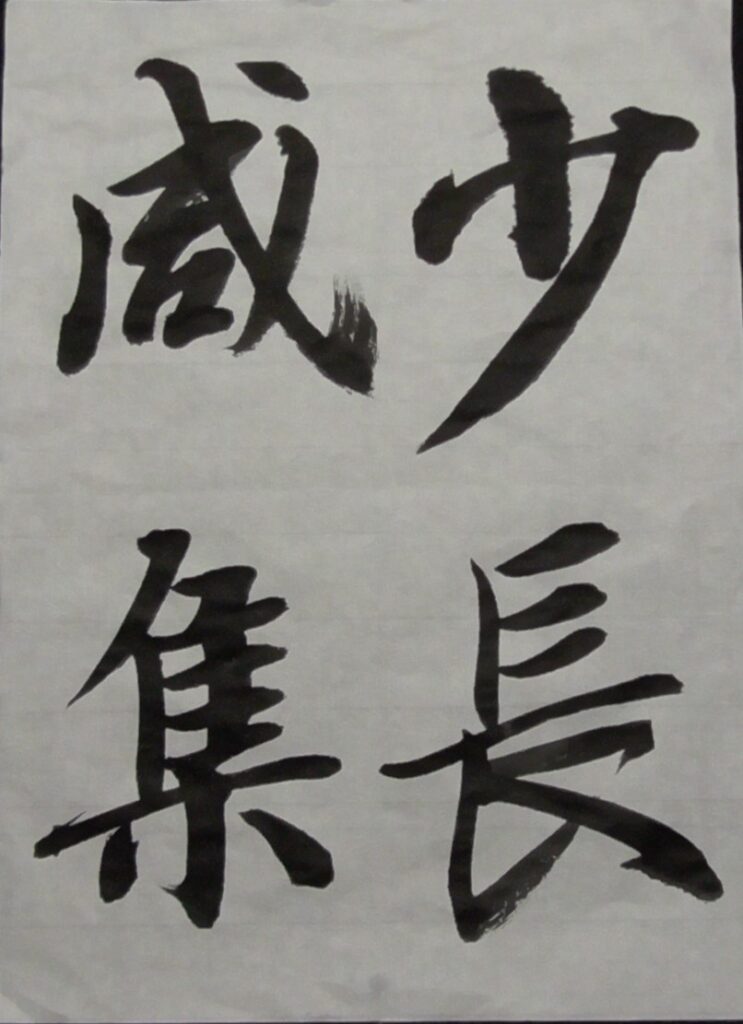 少長
咸集